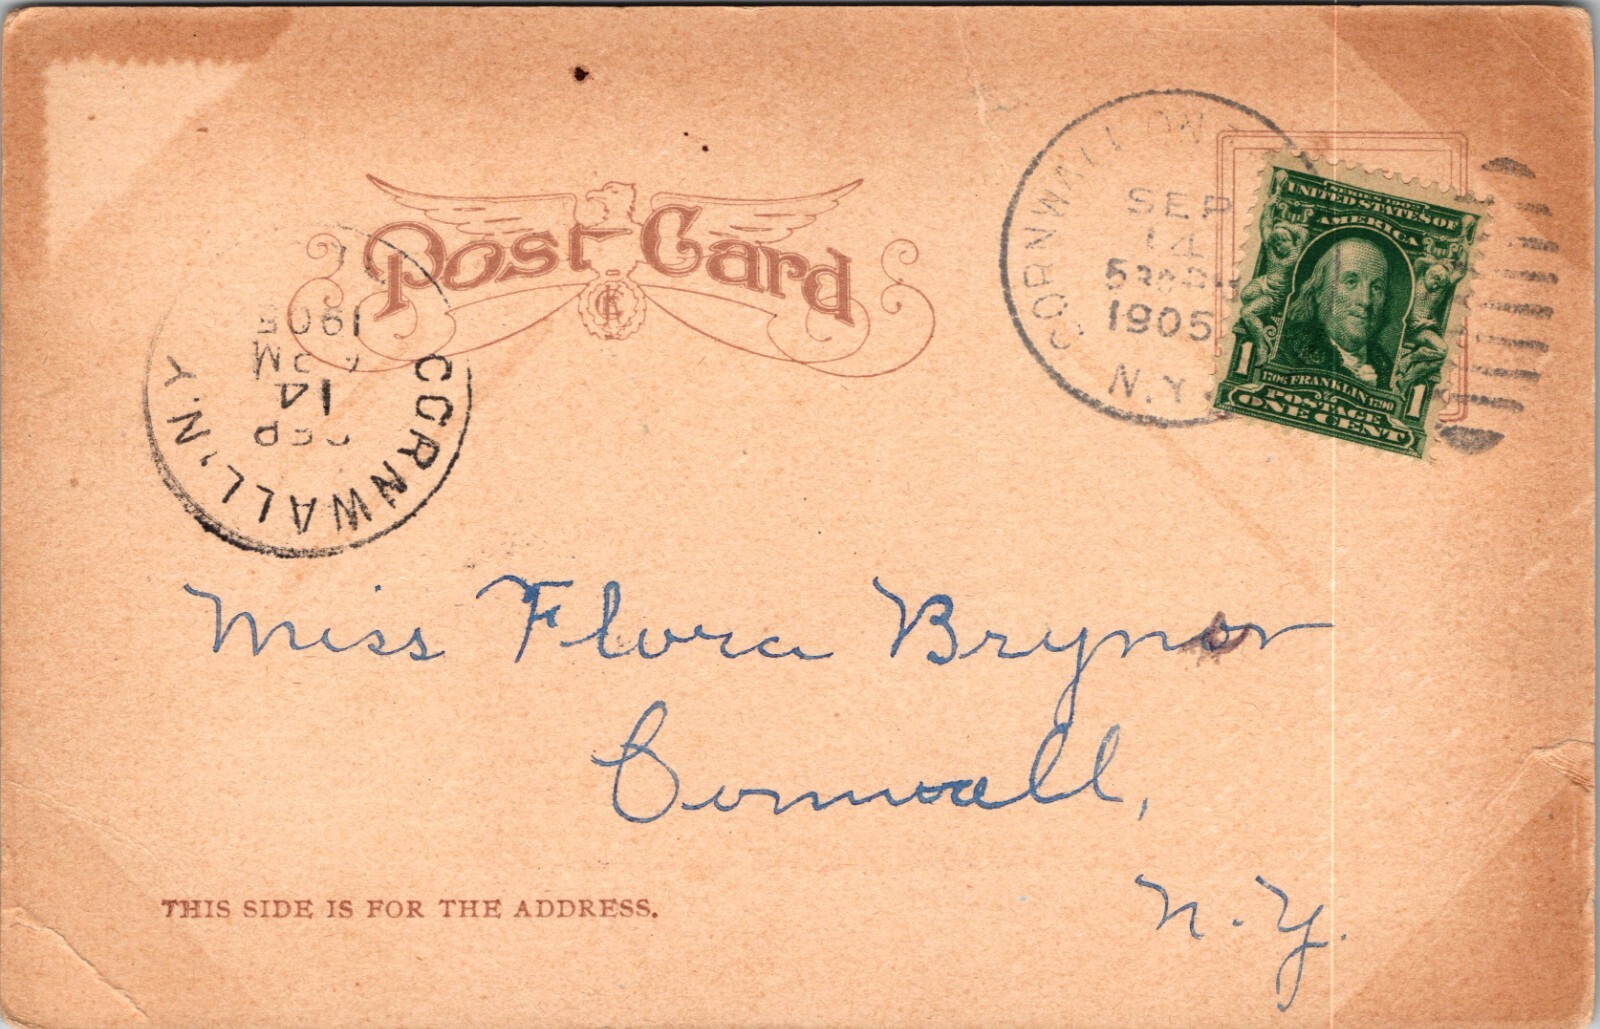 Post Card
CORNWALL ON
SEP
14
1905
N.Y.
SERIES 1902
UNITED STATES OF
AMERICA
1706 FRANKLIN 1790
1 1
POSTAGE
ONE CENT
CORNWALL, N.Y.
SEP
14
1905
Miss Flora Brynor
Cornwall,
N.Y.
THIS SIDE IS FOR THE ADDRESS.